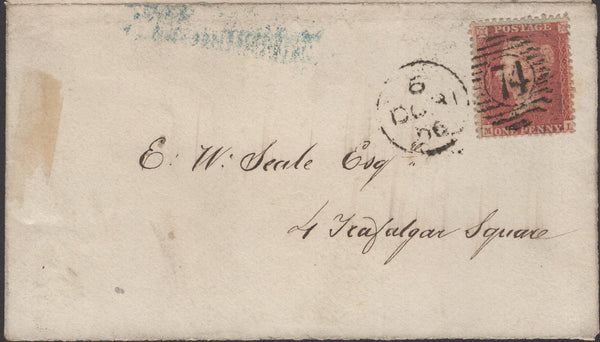 POSTAGE
74
ONE PENNY
6
E. W. Seale Esq
4 Trafalgar Square